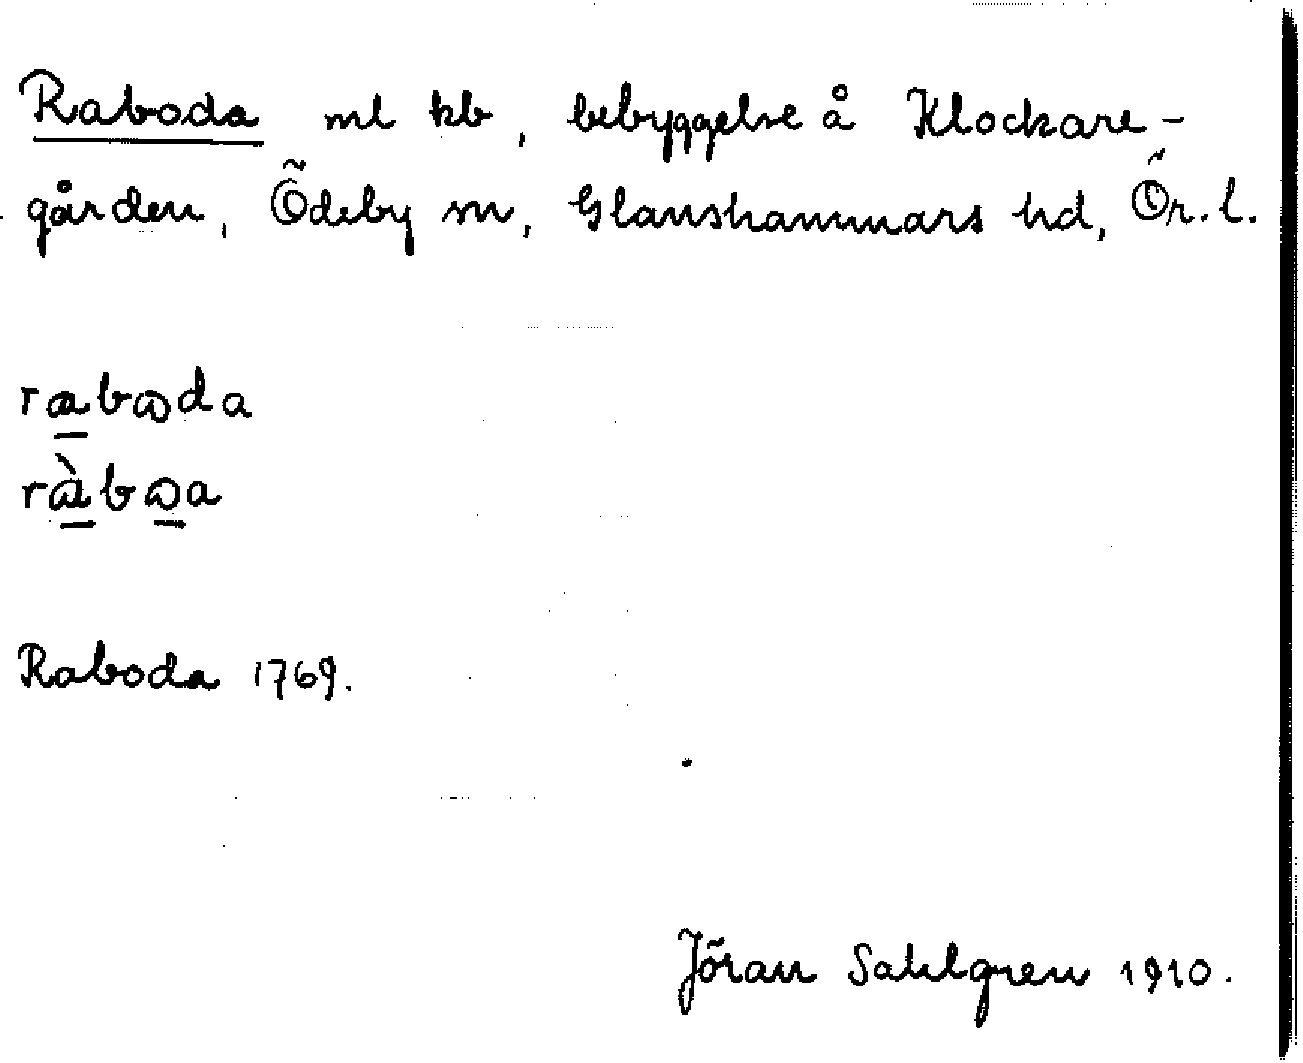 Raboda ml kb, bebyggelse å Klockare-
gården, Ödeby sn, Glanshammars hd, Ör. l.
raboda
ràboa
Raboda 1769.
Jöran Sahlgren 1910.